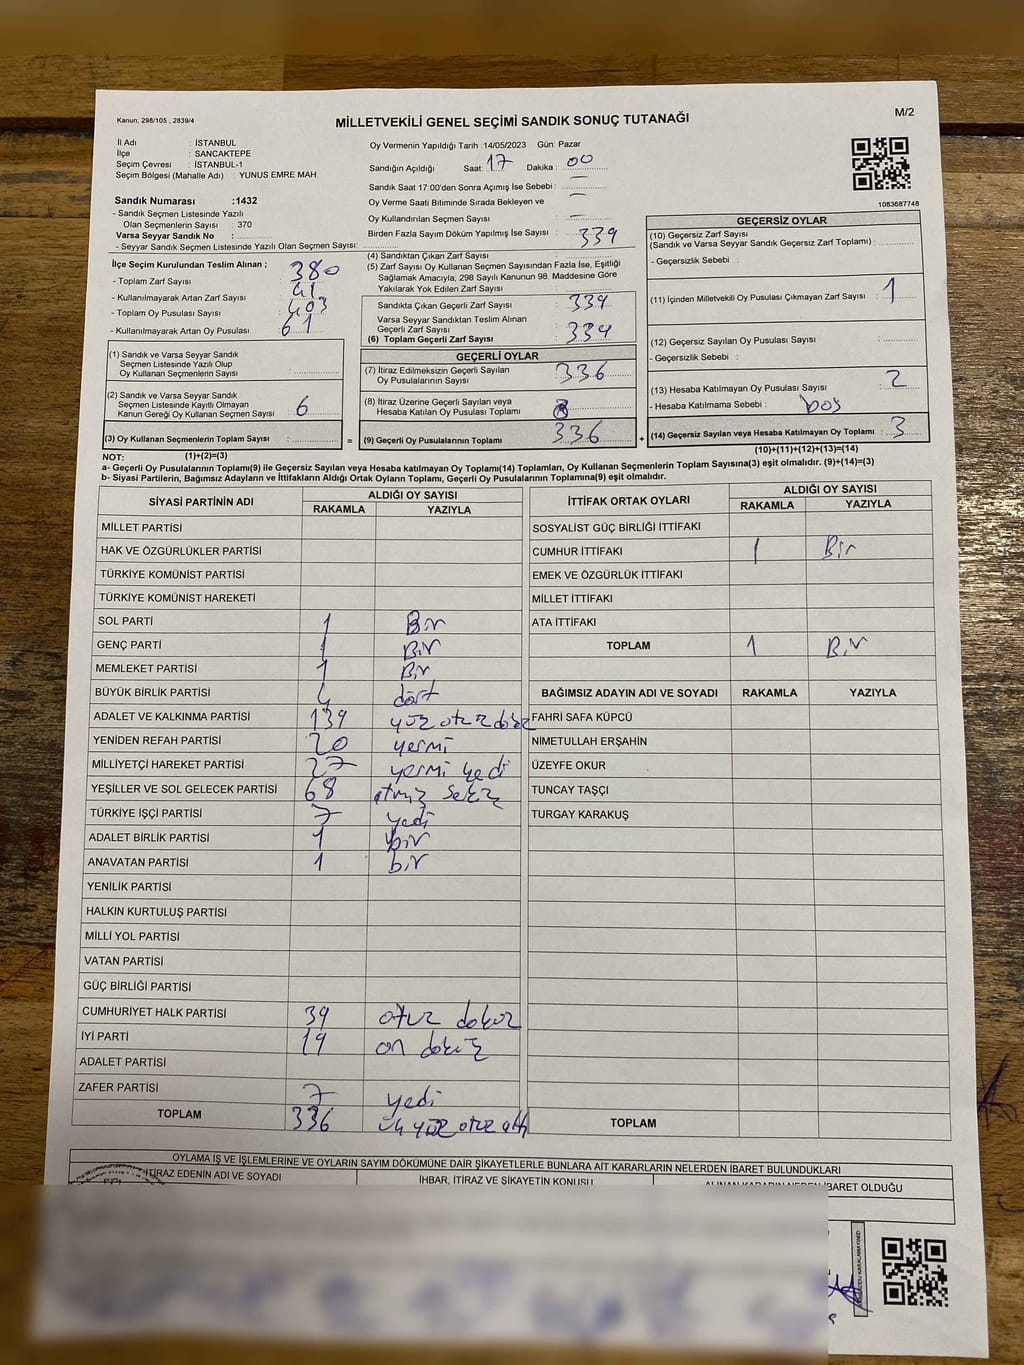 Kanun; 298/105 , 2839/4
MİLLETVEKİLİ GENEL SEÇİMİ SANDIK SONUÇ TUTANAĞI
M/2
İl Adı : İSTANBUL
İlçe : SANCAKTEPE
Seçim Çevresi : İSTANBUL-1
Seçim Bölgesi (Mahalle Adı) : YUNUS EMRE MAH.
Sandık Numarası :1432
- Sandık Seçmen Listesinde Yazılı
Olan Seçmenlerin Sayısı : 370
Varsa Seyyar Sandık No :
- Seyyar Sandık Seçmen Listesinde Yazılı Olan Seçmen Sayısı:
Oy Vermenin Yapıldığı Tarih :14/05/2023 Gün: Pazar
Sandığın Açıldığı Saat: 17 Dakika : 00
Sandık Saat 17:00'den Sonra Açımış İse Sebebi : —
Oy Verme Saati Bitiminde Sırada Bekleyen ve —
Oy Kullandırılan Seçmen Sayısı : —
Birden Fazla Sayım Döküm Yapılmış İse Sayısı : 339
1083687748
İlçe Seçim Kurulundan Teslim Alınan ;
- Toplam Zarf Sayısı : 380
- Kullanılmayarak Artan Zarf Sayısı : 41
- Toplam Oy Pusulası Sayısı : 403
- Kullanılmayarak Artan Oy Pusulası : 61
(1) Sandık ve Varsa Seyyar Sandık
Seçmen Listesinde Yazılı Olup
Oy Kullanan Seçmenlerin Sayısı :
(2) Sandık ve Varsa Seyyar Sandık
Seçmen Listesinde Kayıtlı Olmayan
Kanun Gereği Oy Kullanan Seçmen Sayısı : 6
(3) Oy Kullanan Seçmenlerin Toplam Sayısı : =
(4) Sandıktan Çıkan Zarf Sayısı :
(5) Zarf Sayısı Oy Kullanan Seçmen Sayısından Fazla İse, Eşitliği
Sağlamak Amacıyla, 298 Sayılı Kanunun 98. Maddesine Göre
Yakılarak Yok Edilen Zarf Sayısı :
Sandıkta Çıkan Geçerli Zarf Sayısı : 339
Varsa Seyyar Sandıktan Teslim Alınan
Geçerli Zarf Sayısı :
(6) Toplam Geçerli Zarf Sayısı : 339
GEÇERLİ OYLAR
(7) İtiraz Edilmeksizin Geçerli Sayılan
Oy Pusulalarının Sayısı : 336
(8) İtiraz Üzerine Geçerli Sayılan veya
Hesaba Katılan Oy Pusulası Toplamı :
(9) Geçerli Oy Pusulalarının Toplamı : 336 +
GEÇERSİZ OYLAR
(10) Geçersiz Zarf Sayısı
(Sandık ve Varsa Seyyar Sandık Geçersiz Zarf Toplamı) :
- Geçersizlik Sebebi :
(11) İçinden Milletvekili Oy Pusulası Çıkmayan Zarf Sayısı : 1
(12) Geçersiz Sayılan Oy Pusulası Sayısı :
- Geçersizlik Sebebi :
(13) Hesaba Katılmayan Oy Pusulası Sayısı : 2
- Hesaba Katılmama Sebebi : boş
(14) Geçersiz Sayılan veya Hesaba Katılmayan Oy Toplamı : 3
NOT: (1)+(2)=(3)
(10)+(11)+(12)+(13)=(14)
a- Geçerli Oy Pusulalarının Toplamı(9) ile Geçersiz Sayılan veya Hesaba katılmayan Oy Toplamı(14) Toplamları, Oy Kullanan Seçmenlerin Toplam Sayısına(3) eşit olmalıdır. (9)+(14)=(3)
b- Siyasi Partilerin, Bağımsız Adayların ve İttifakların Aldığı Ortak Oyların Toplamı, Geçerli Oy Pusulalarının Toplamına(9) eşit olmalıdır.
SİYASİ PARTİNİN ADI ALDIĞI OY SAYISI
RAKAMLA YAZIYLA
MİLLET PARTİSİ
HAK VE ÖZGÜRLÜKLER PARTİSİ
TÜRKİYE KOMÜNİST PARTİSİ
TÜRKİYE KOMÜNİST HAREKETİ
SOL PARTİ 1 Bir
GENÇ PARTİ 1 Bir
MEMLEKET PARTİSİ 1 Bir
BÜYÜK BİRLİK PARTİSİ 4 dört
ADALET VE KALKINMA PARTİSİ 139 yüz otuz dokuz
YENİDEN REFAH PARTİSİ 20 yermi
MİLLİYETÇİ HAREKET PARTİSİ 27 yermi yedi
YEŞİLLER VE SOL GELECEK PARTİSİ 68 atmış sekiz
TÜRKİYE İŞÇİ PARTİSİ 7 yedi
ADALET BİRLİK PARTİSİ 1 bir
ANAVATAN PARTİSİ 1 bir
YENİLİK PARTİSİ
HALKIN KURTULUŞ PARTİSİ
MİLLİ YOL PARTİSİ
VATAN PARTİSİ
GÜÇ BİRLİĞİ PARTİSİ
CUMHURİYET HALK PARTİSİ 39 otuz dokuz
İYİ PARTİ 19 on dokuz
ADALET PARTİSİ
ZAFER PARTİSİ 7 yedi
TOPLAM 336 üç yüz otuz altı
İTTİFAK ORTAK OYLARI ALDIĞI OY SAYISI
RAKAMLA YAZIYLA
SOSYALİST GÜÇ BİRLİĞİ İTTİFAKI
CUMHUR İTTİFAKI 1 Bir
EMEK VE ÖZGÜRLÜK İTTİFAKI
MİLLET İTTİFAKI
ATA İTTİFAKI
TOPLAM 1 Bir
BAĞIMSIZ ADAYIN ADI VE SOYADI RAKAMLA YAZIYLA
FAHRİ SAFA KÜPCÜ
NİMETULLAH ERŞAHİN
ÜZEYFE OKUR
TUNCAY TAŞÇI
TURGAY KARAKUŞ
TOPLAM
OYLAMA İŞ VE İŞLEMLERİNE VE OYLARIN SAYIM DÖKÜMÜNE DAİR ŞİKAYETLERLE BUNLARA AİT KARARLARIN NELERDEN İBARET BULUNDUKLARI
İTİRAZ EDENİN ADI VE SOYADI İHBAR, İTİRAZ VE ŞİKAYETİN KONUSU ALINAN KARARIN NEDEN İBARET OLDUĞU